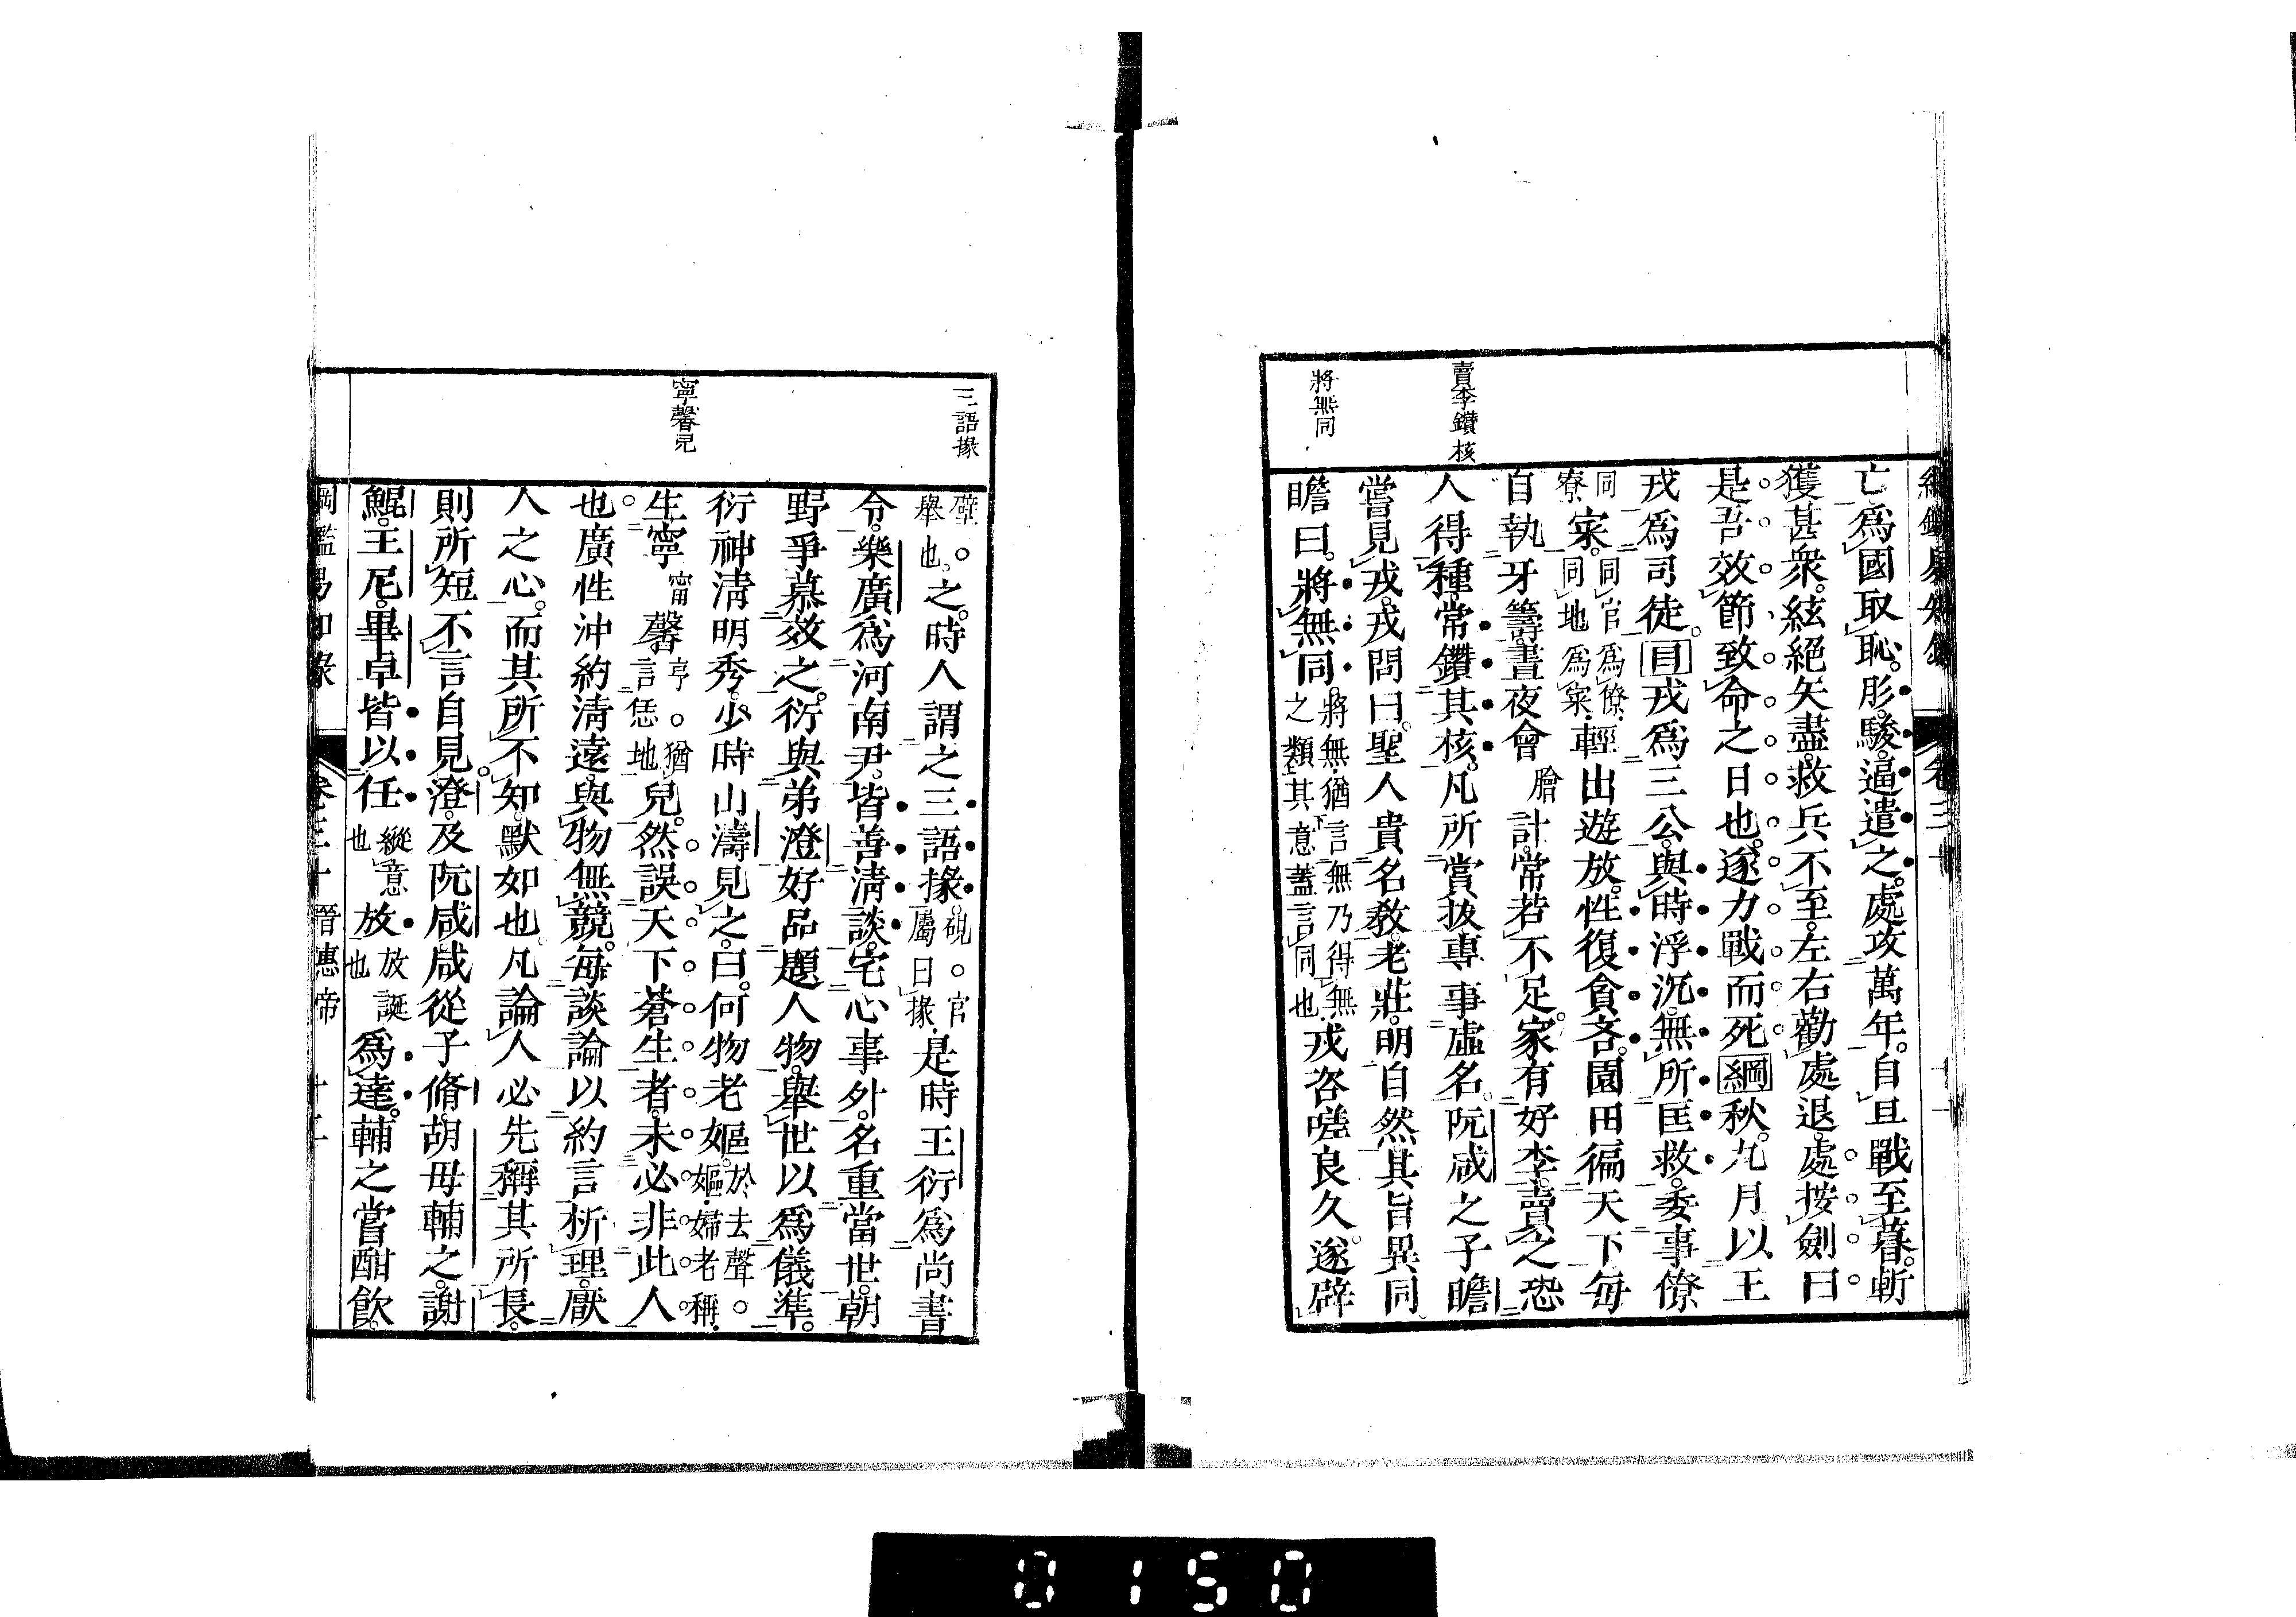 賣李鑽核
將無同
亡爲國取恥。彤。駿。逼遣之。處攻萬年。自旦戰至暮。斬
獲甚衆。絃絕矢盡。救兵不至。左右勸處退。處按劍曰
是吾效節致命之日也。遂力戰而死綱秋。九月以王
戎爲司徒。目戎爲三公。與時浮沉。無所匡救。委事僚
同寮寀。同官爲僚。同地爲寀。輕出遊放。性復貪吝。園田徧天下每
自執牙籌。晝夜會膾計。常若不足。家有好李。賣之恐
人得種。常鑽其核。凡所賞拔專事虛名。阮咸之子瞻
嘗見戎。戎問曰。聖人貴名教。老莊。明自然。其旨異同
瞻曰。將無同。將無。猶言無乃得無之類。其意蓋言同也。戎咨嗟良久。遂辟
三語掾
寧馨兒
壁。舉也。之。時人謂之三語掾。硯。官屬曰掾。是時王衍爲尚書
令。樂廣爲河南尹。皆善清談。宅心事外。名重當世。朝
野爭慕效之。衍與弟澄好品題人物。舉世以爲儀準。
衍神清明秀。少時山濤見之。曰。何物老嫗。於去聲。嫗。婦老稱。
生寧甯馨亨。猶言恁地兒。然誤天下蒼生者。未必非此人
也。廣性沖約清遠。與物無競。每談論以約言析理。厭
人之心。而其所不知。默如也。凡論人必先稱其所長。
則所短不言自見。澄。及阮咸。咸從子脩。胡母輔之。謝
鯤。王尼。畢卓皆以任縱意也放放誕也爲達。輔之嘗酣飲。
綱鑑易知錄 卷三十 晉惠帝 十二